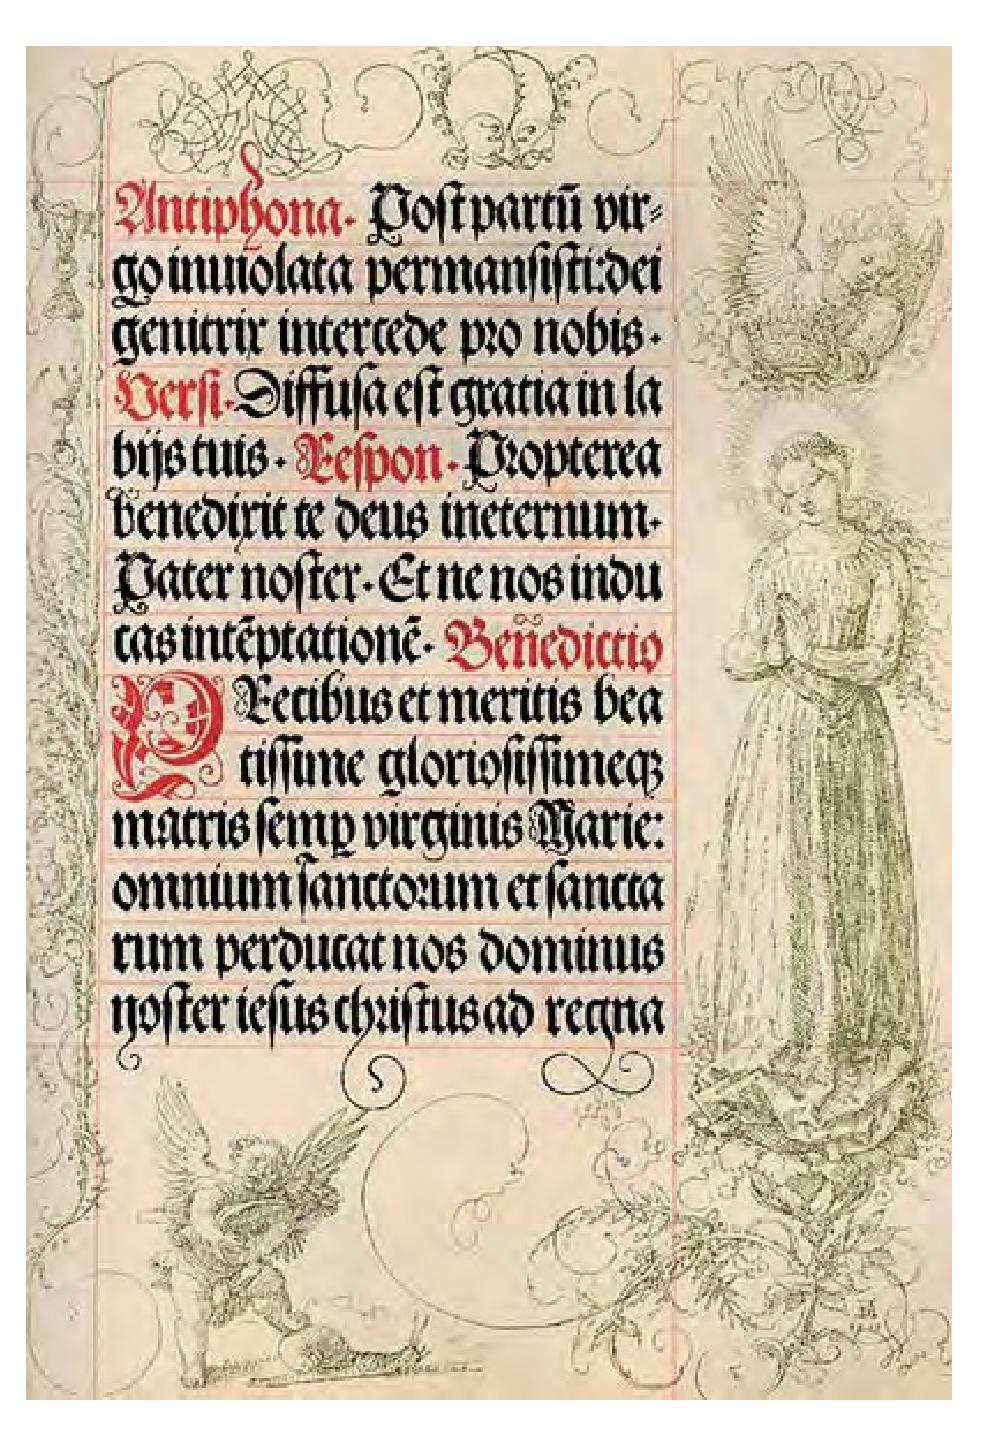 Antiphona. Poſt partū vir⸗
go inuiolata permanſiſti: dei
genitrix intercede pro nobis.
Verſi. Diffuſa eſt gratia in la
bijs tuis. Reſpon. Propterea
benedixit te deus ineternum.
Pater noſter. Et ne nos indu
cas intēptationē. Benedictio
PRecibus et meritis bea
tiſſime glorioſiſſimeqꝫ
matris ſemꝑ virginis Marie:
omnium ſanctorum et ſancta
rum perducat nos dominus
noſter ieſus chriſtus ad regna